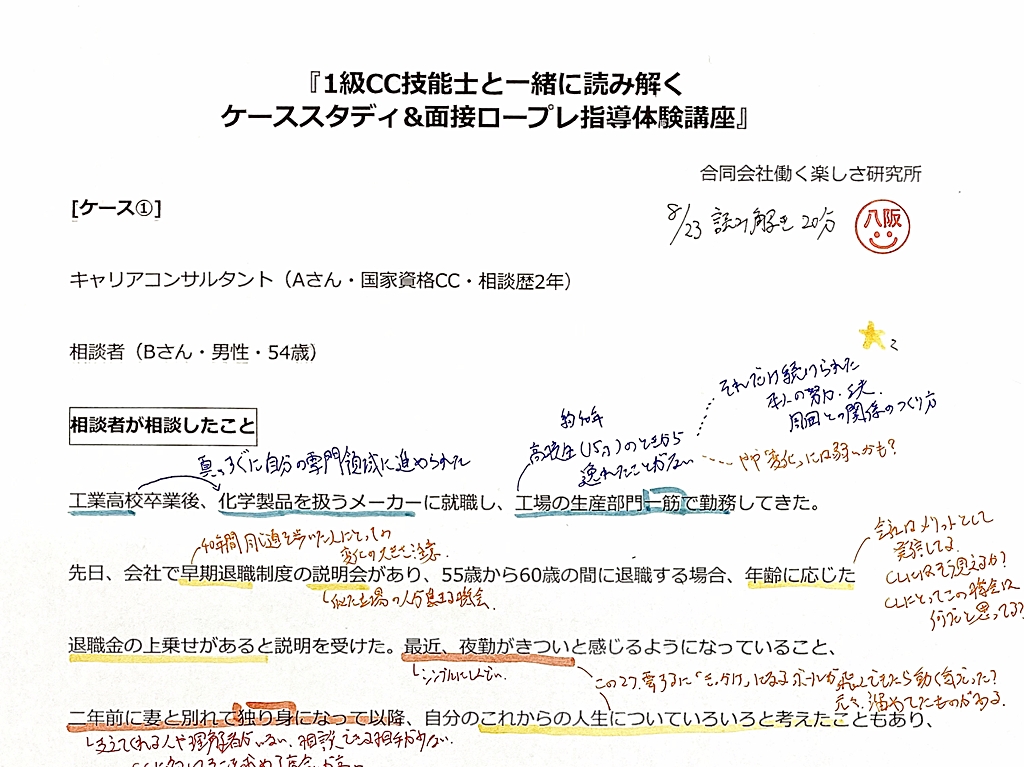 『1級CC技能士と一緒に読み解く
ケーススタディ&面接ロープレ指導体験講座』
合同会社働く楽しさ研究所
[ケース①]
8/23 読み解き 20分
八阪
キャリアコンサルタント（Aさん・国家資格CC・相談歴2年）
相談者（Bさん・男性・54歳）
2
それだけ続けられた
本人の努力・工夫
周囲との関係のつくり方
相談者が相談したこと
約40年
高校生(15才)のときから
逸れたことがない
やや"変化"には弱いかも?
真っすぐに自分の専門領域に進められた
工業高校卒業後、化学製品を扱うメーカーに就職し、工場の生産部門一筋で勤務してきた。
40年間同じ道を歩いた人にとっての
変化の大きさ注意.
会社はメリットとして
発信してる
CLにはそう見えるか?
CLにとってこの機会は
何だと思ってる?
先日、会社で早期退職制度の説明会があり、55歳から60歳の間に退職する場合、年齢に応じた
似た立場の人が集まる機会.
退職金の上乗せがあると説明を受けた。最近、夜勤がきついと感じるようになっていること、
シンプルにしんどい.
この2つ.要するに「きっかけ」になるボールが飛んできたら動く気だった?
元々、温めてたものがある.
二年前に妻と別れて独り身になって以降、自分のこれからの人生についていろいろと考えたこともあり、
支えてくれる人や理解者がいない.相談できる相手が少ない.